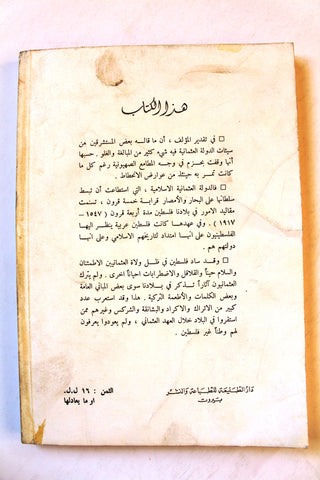 هذا الكتاب
□ في تقدير المؤلف، أن ما قاله بعض المستشرقين عن
سيئات الدولة العثمانية فيه شيء كثير من المبالغة والغلو. حسبها
أنها وقفت بحزم في وجه المطامع الصهيونية رغم كل ما
كانت تمر به حينئذ من عوارض الانحطاط.
□ فالدولة العثمانية الاسلامية، التي استطاعت أن تبسط
سلطانها على البحار والأمصار قرابة خمسة قرون، تسنمت
مقاليد الامور في بلادنا فلسطين مدة أربعة قرون (١٥٤٧ -
١٩١٧). وفي عهدها كانت فلسطين عربية ينظر اليها
الفلسطينيون على أنها امتداد لتاريخهم الاسلامي وعلى أنها
دولتهم هم.
□ وقد ساد فلسطين في ظل ولاة العثمانيين الاطمئنان
والسلام حيناً والقلاقل والاضطرابات احيانا اخرى. ولم يترك
العثمانيون آثاراً تذكر في بلادنا سوى بعض المباني العامة
وبعض الكلمات والأطعمة التركية. هذا وقد استعرب عدد
كبير من الاتراك والاكراد والبشانقة والشركس وغيرهم ممن
استقروا في البلاد خلال العهد العثماني، ولم يعودوا يعرفون
لهم وطناً غير فلسطين.
دار الطليعة للطباعة والنشر
بيروت
الثمن: ١٦ ل.ل.
او ما يعادلها